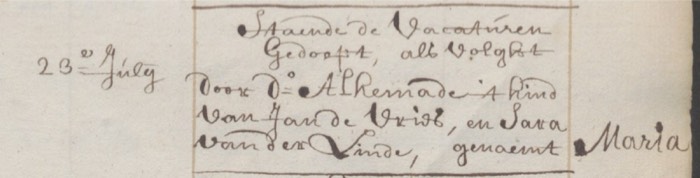 Staende de Vacaturen
Gedoopt, als Volght
23.e July
door D.o Alhemade 't kind
van Jan de Vries, en Sara
van der Linde, genaemt Maria